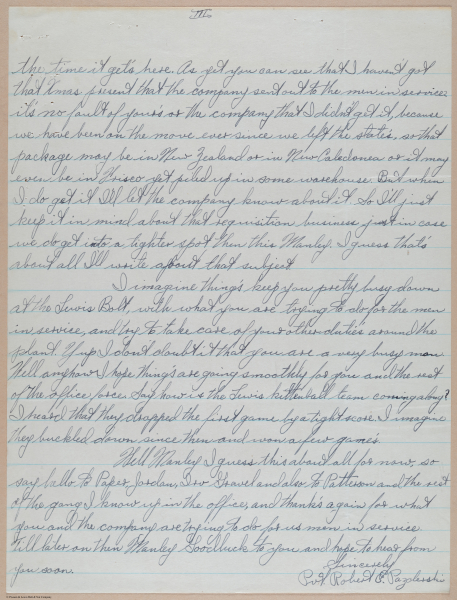 III.
the time it gets here. As yet you can see that I haven't got
that Xmas present that the company sent out to the men in service
it's no fault of your's or the company that I didn't get it, because
we have been on the move ever since we left the states, so that
package may be in New Zealand or in New Caledonia or it may
even be in Frisco yet piled up in some warehouse. But when
I do get it I'll let the company know about it. So I'll just
keep it in mind about that requisition business just in case
we do get into a tighter spot then this Manley. I guess that's
about all I'll write about that subject
I imagine thing's keep you pretty busy down
at the Lewis Bolt, with what you are trying to do for the men
in service, and try to take care of your other duties around the
plant. Yup I don't doubt it that you are a very busy man
Well anyhow I hope thing's are going smoothly for you and the rest
of the office force. Say how is the Lewis kittenball team coming along?
I heard that they dropped the first game by a tight score. I imagine
they buckled down since then and won a few game's.
Well Manley I guess this about all for now, so
say hallo to Paper, Jordan, Gravel and also to Patterson and the rest
of the gang I know up in the office, and thanks again for what
you and the company are trying to do for us men in service
Till later on then Manley Good luck to you and hope to hear from
you soon.
Sincerely
Pvt Robert E.